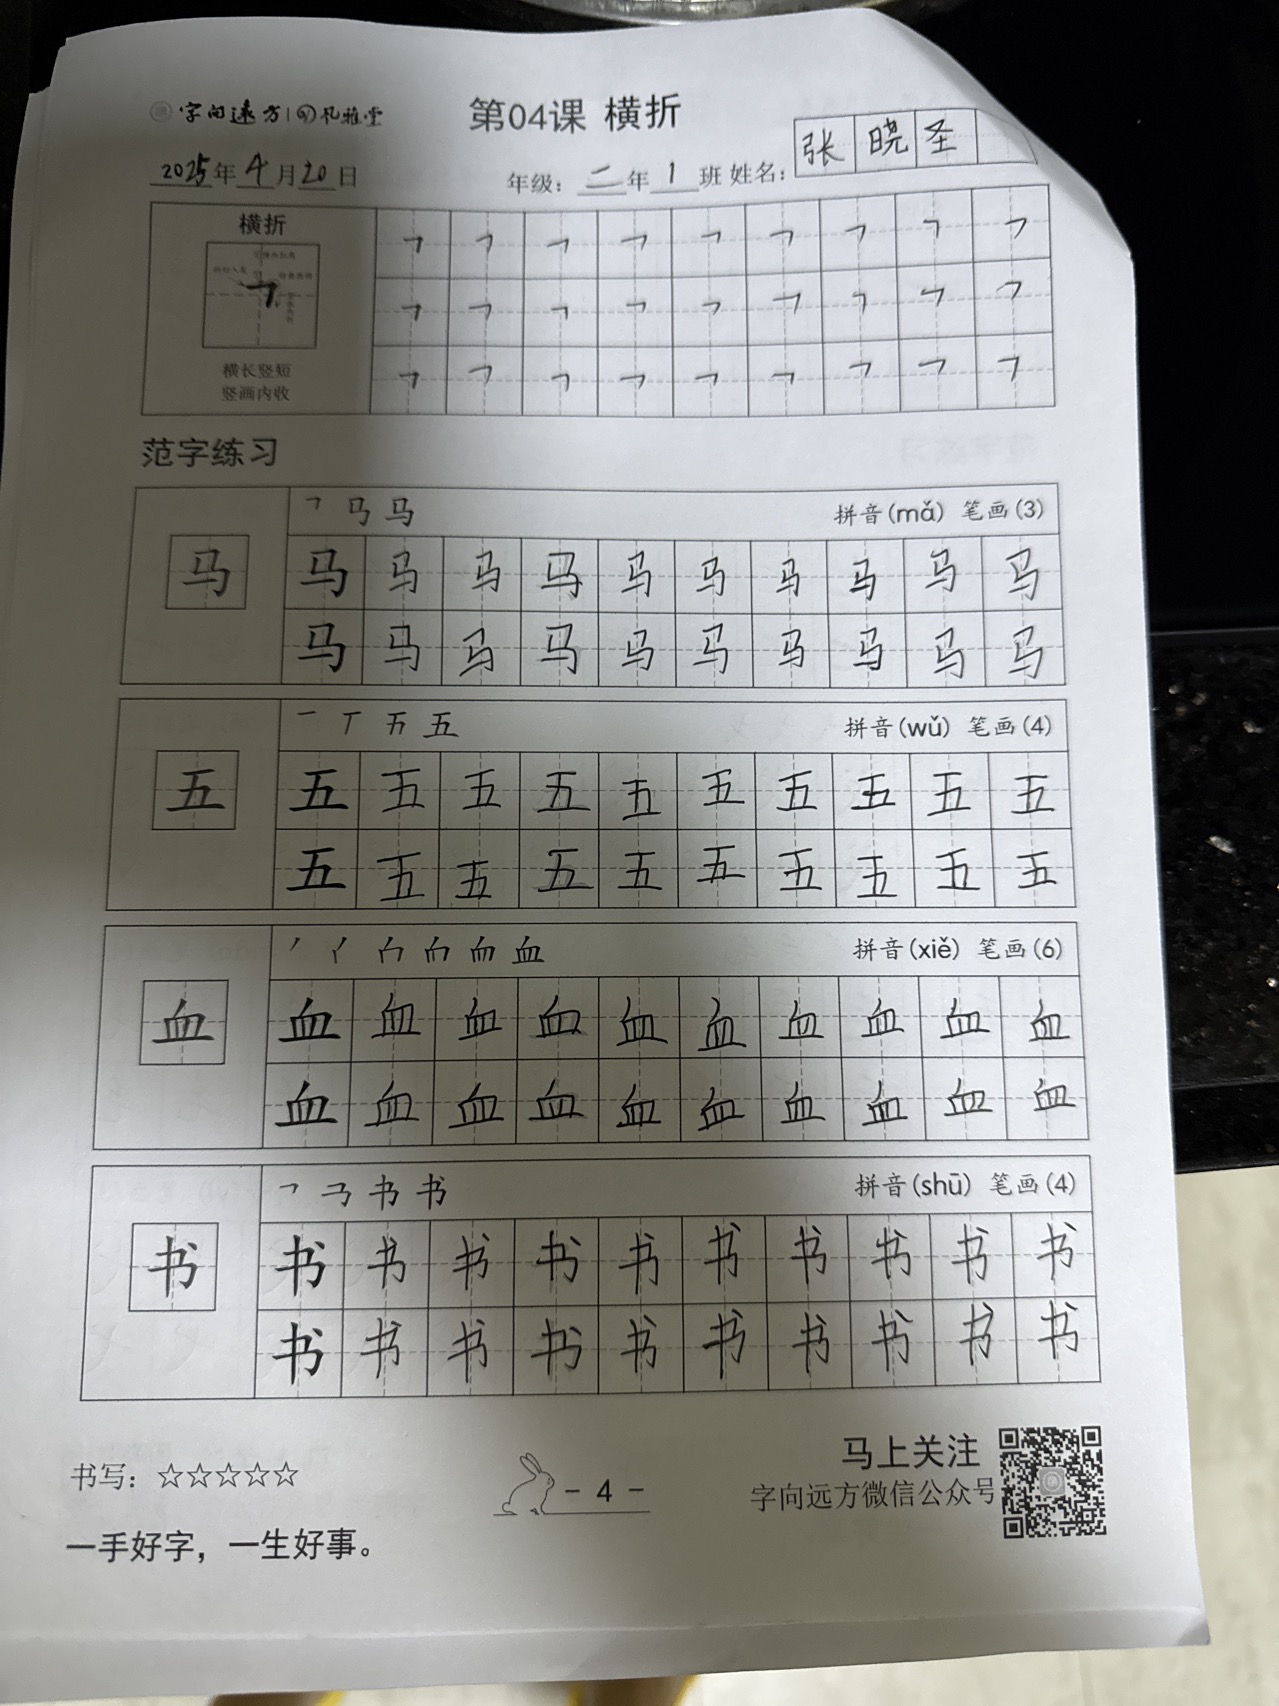 字向远方 | 风雅堂
第04课 横折
2025年4月20日
年级：二年1班 姓名：张晓圣
横折
横长竖短
竖画内收
范字练习
马 拼音(mǎ) 笔画(3)
马
马马马马马马马马马马
马马马马马马马马马马
五 拼音(wǔ) 笔画(4)
五
五五五五五五五五五五
五五五五五五五五五五
血 拼音(xiě) 笔画(6)
血
血血血血血血血血血血
血血血血血血血血血血
书 拼音(shū) 笔画(4)
书
书书书书书书书书书书
书书书书书书书书书书
书写：☆☆☆☆☆
- 4 -
马上关注
字向远方微信公众号
一手好字，一生好事。